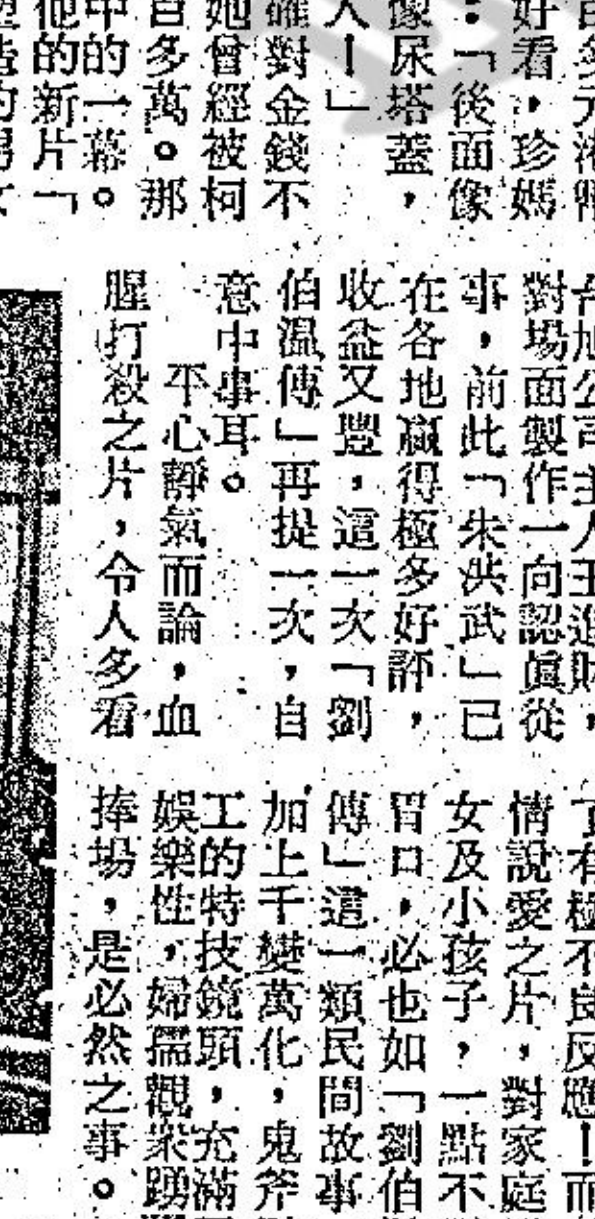 百多元港
好看，珍媽
：「後面像
像尿塔蓋，
人！」
確對金錢不
她曾經被柯
百多萬。那
中的一幕。
他的新片「
公司主人王進財，
對場面製作一向認眞從
事，前此「朱洪武」已
在各地贏得極多好評，
收益又豐，這一次「劉
伯溫傳」再提一次，自
意中事耳。
平心靜氣而論，血
腥打殺之片，令人多看
了有極不良反應！而
情說愛之片，對家庭
女及小孩子，一點不
胃口，必也如「劉伯
傳」這一類民間故事
加上千變萬化，鬼斧
工的特技鏡頭，充滿
娛樂性，婦孺觀衆踴
捧場，是必然之事。